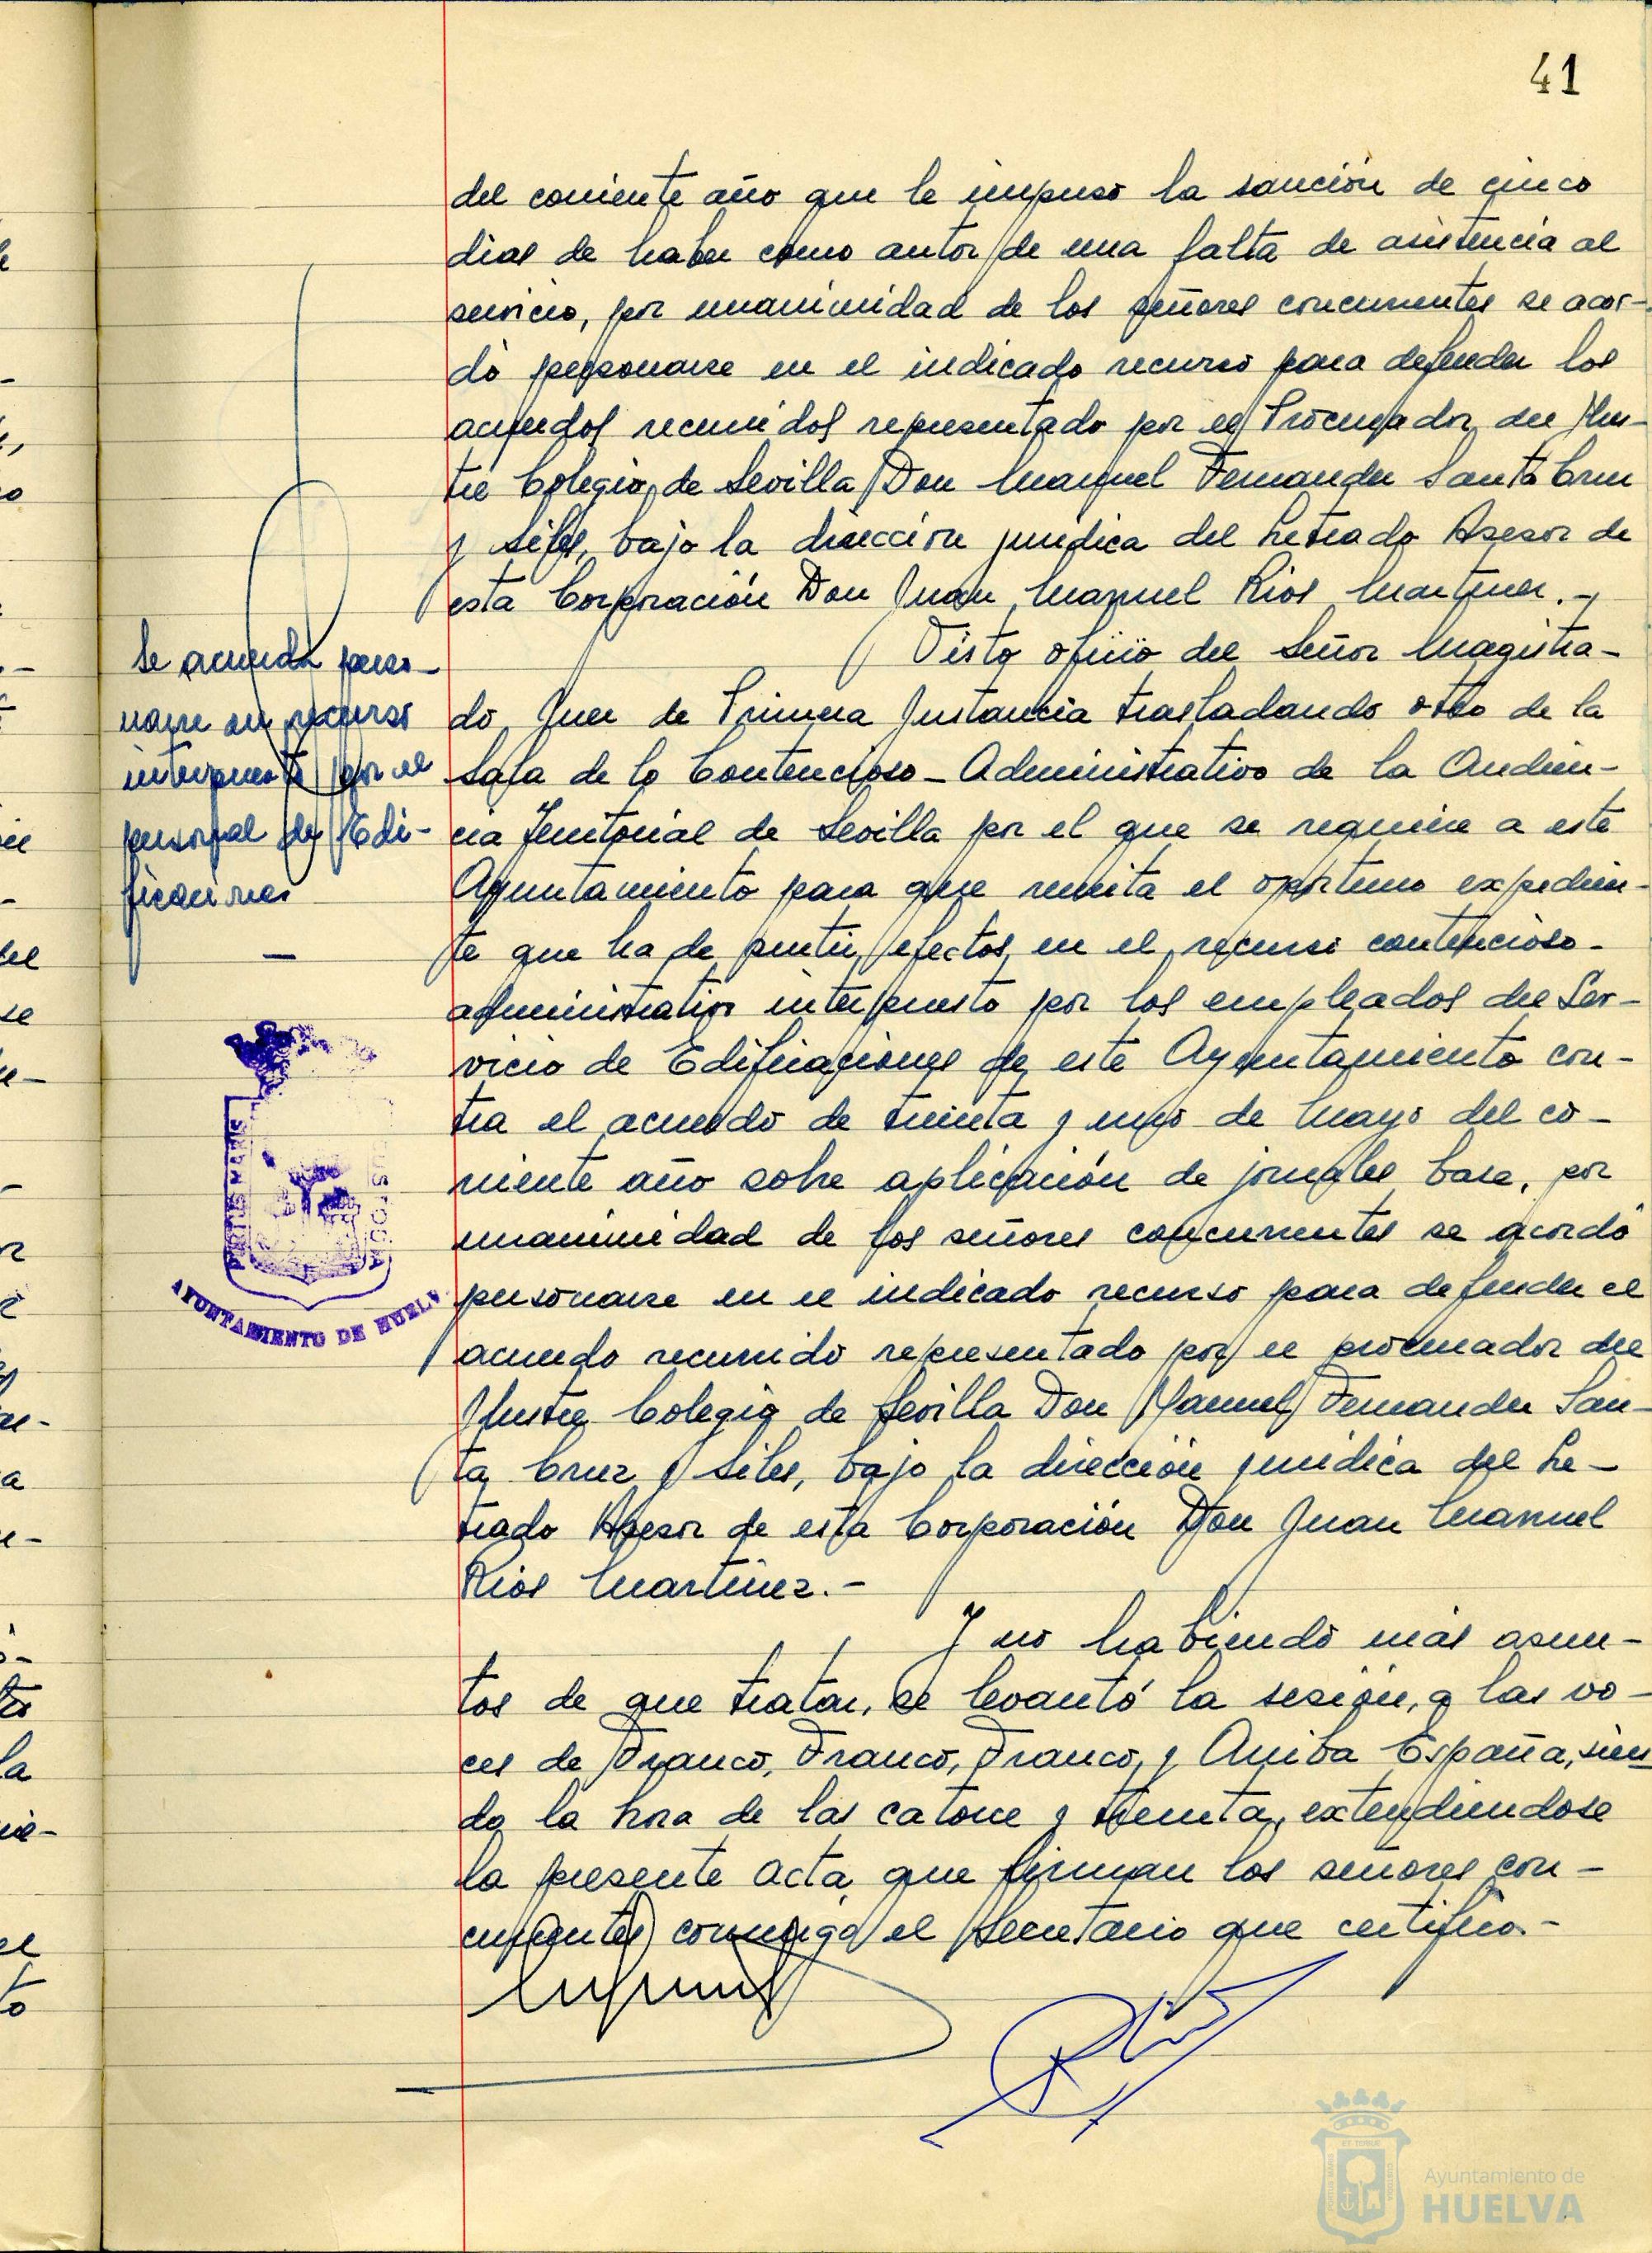 41
del corriente año que le impuso la sanción de cinco
dias de haber como autor de una falta de asistencia al
servicio, por unanimidad de los señores concurrentes se acor-
dó personarse en el indicado recurso para defender los
acuerdos recurridos representado por el Procurador del Ilus-
tre Colegio de Sevilla Don Manuel Fernandez Santa Cruz
y Siles, bajo la dirección juridica del Letrado Asesor de
esta Corporación Don Juan Manuel Rios Martinez.-
Se acuerda perso-
narse en recurso
interpuesto por el
personal de Edi-
ficaciones
—
Visto oficio del Señor Magistra-
do Juez de Primera Instancia trasladando otro de la
Sala de lo Contencioso-Administrativo de la Audien-
cia Territorial de Sevilla por el que se requiere a este
Ayuntamiento para que remita el oportuno expedien-
te que ha de surtir efectos en el recurso contencioso-
administrativo interpuesto por los empleados del Ser-
vicio de Edificaciones de este Ayuntamiento con-
tra el acuerdo de treinta y uno de Mayo del co-
rriente año sobre aplicación de jornales base, por
unanimidad de los señores concurrentes se acordó
personarse en el indicado recurso para defender el
acuerdo recurrido representado por el procurador del
Ilustre Colegio de Sevilla Don Manuel Fernandez San-
ta Cruz y Siles, bajo la dirección juridica del Le-
trado Asesor de esta Corporación Don Juan Manuel
Rios Martinez.-
Y no habiendo más asun-
tos de que tratar, se levantó la sesión, a las vo-
ces de Franco, Franco, Franco, y Arriba España, sien
do la hora de las catorce y treinta, extendiendose
la presente acta, que firman los señores con-
currentes conmigo el Secretario que certifico.-
PORTUS MARIS
AYUNTAMIENTO DE HUELV
Ayuntamiento de
HUELVA